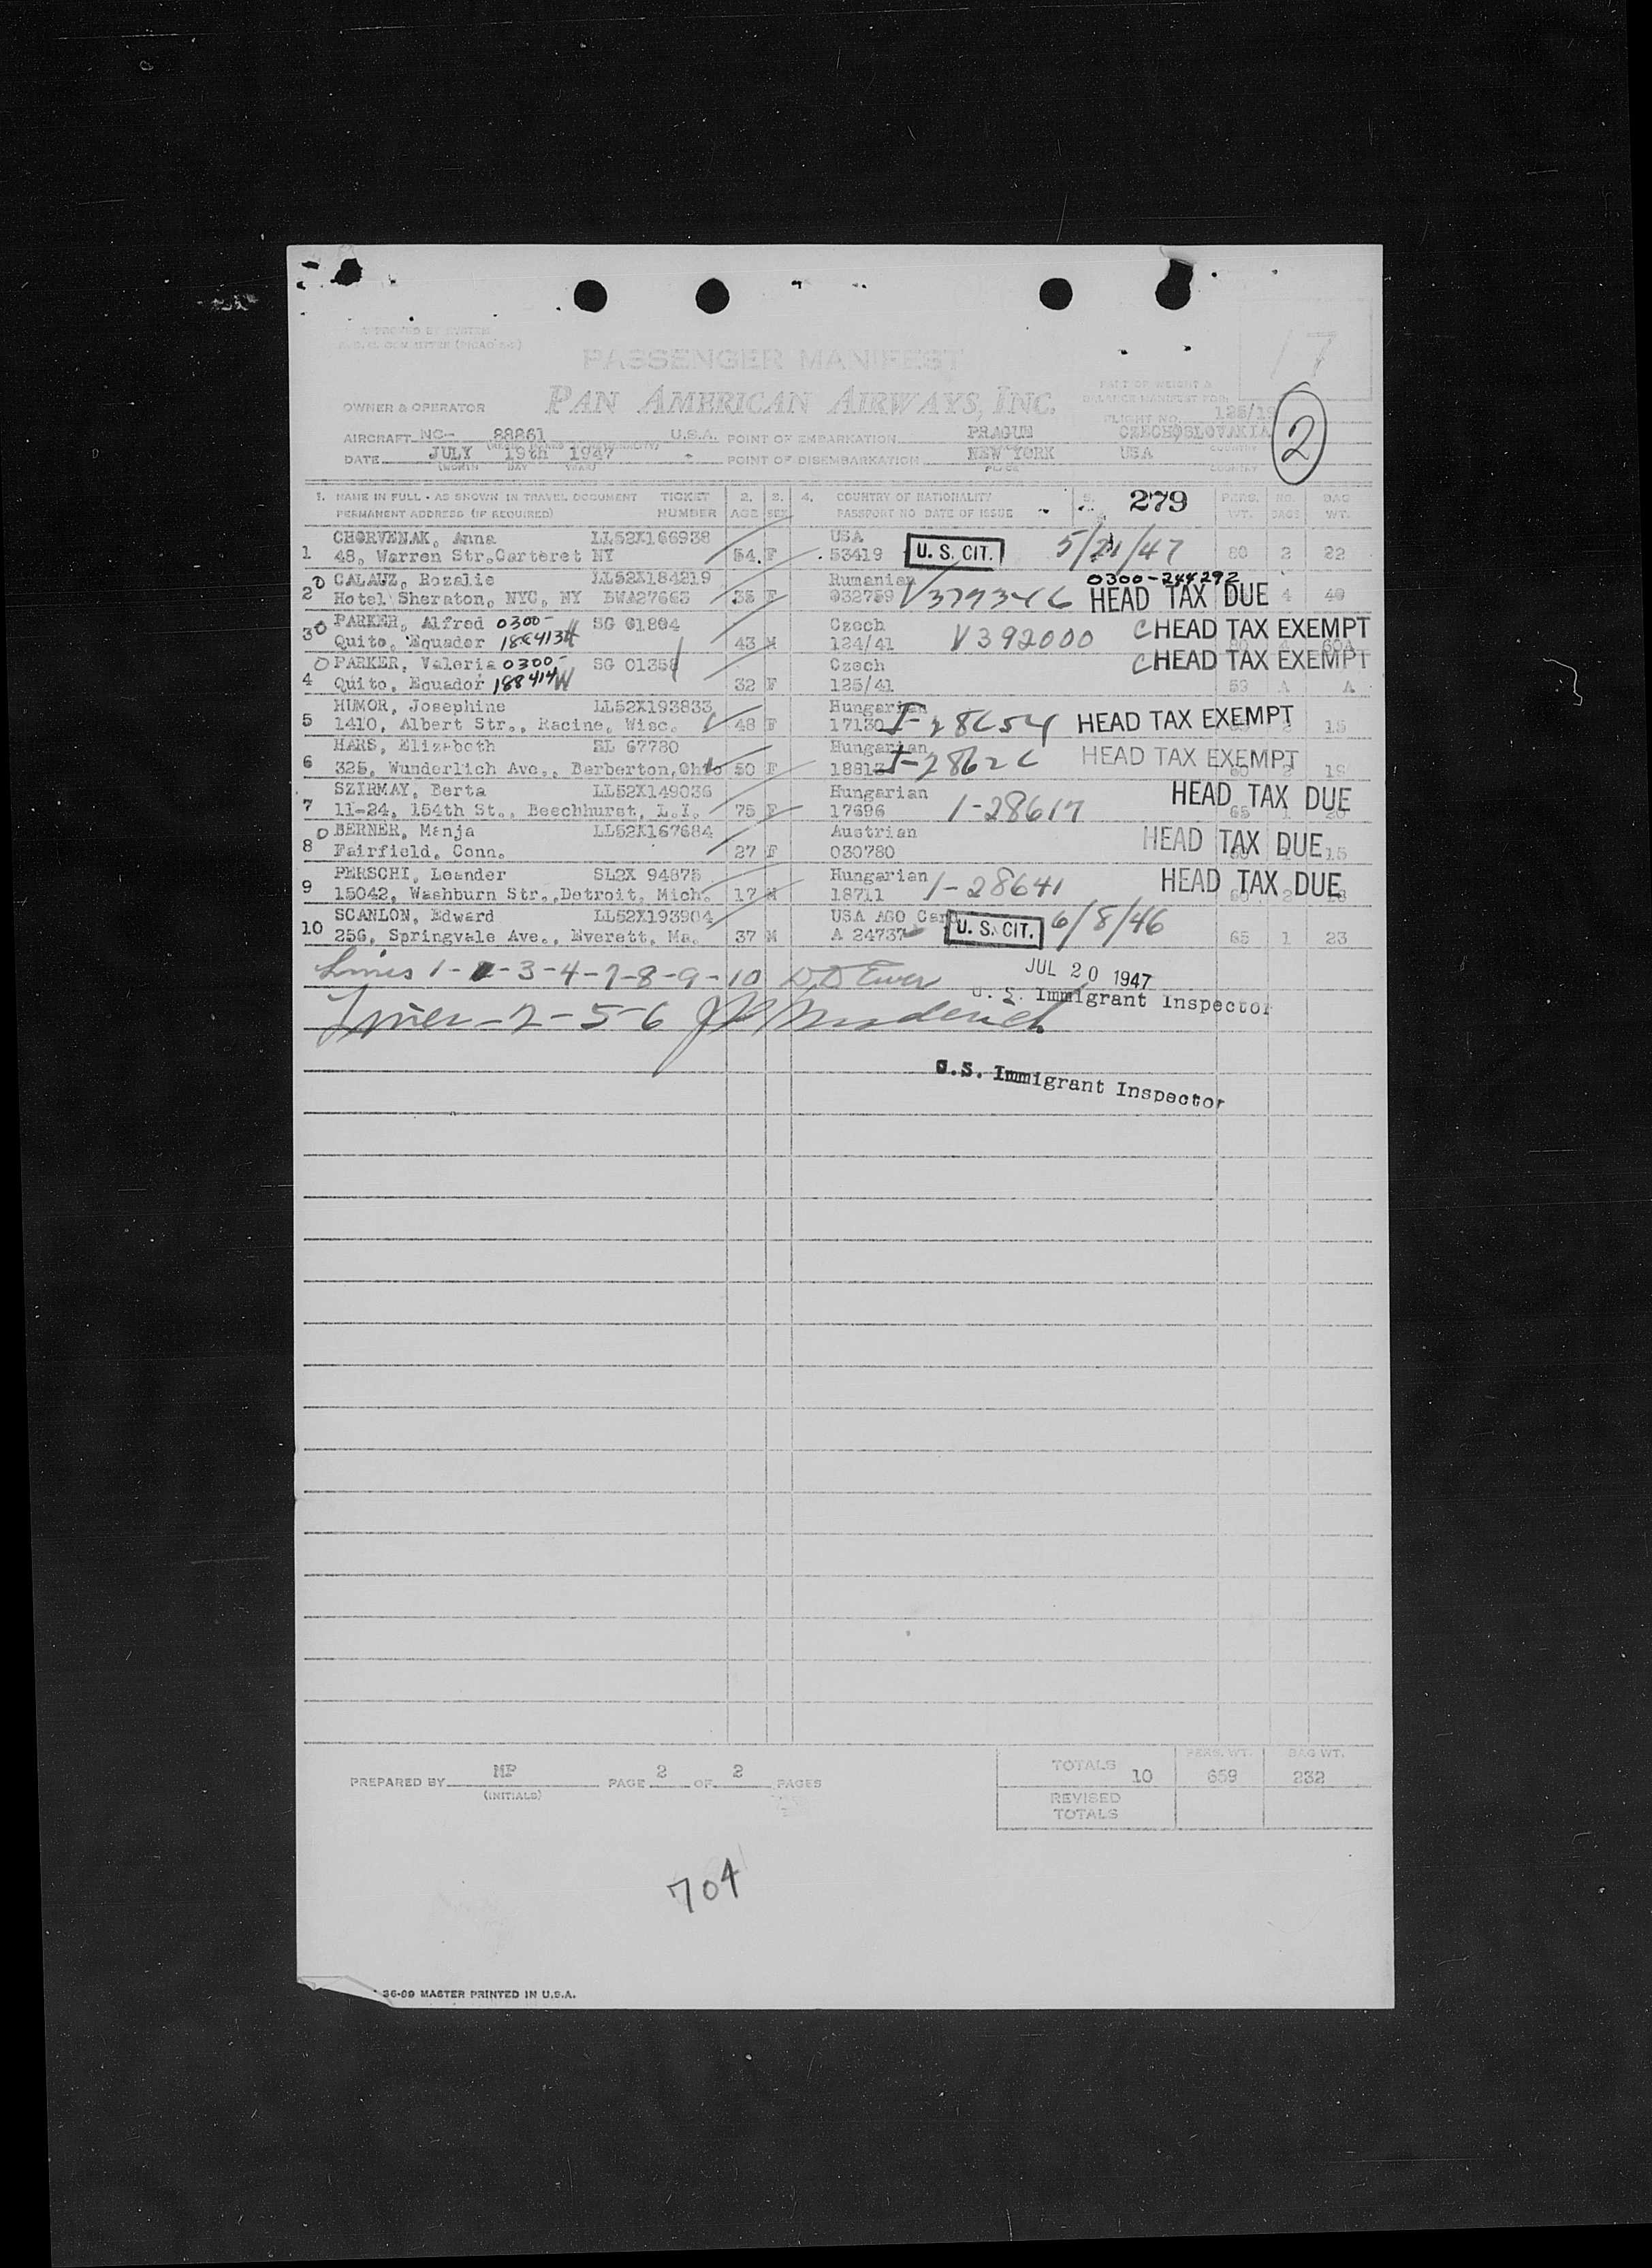 17
APPROVED BY SYSTEM
PASSENGER MANIFEST
PART OF WEIGHT &
BALANCE MANIFEST FOR
OWNER & OPERATOR PAN AMERICAN AIRWAYS, INC.
FLIGHT NO. 125/19
AIRCRAFT NC- 88861 U.S.A. POINT OF EMBARKATION PRAGUE CZECHOSLOVAKIA
2
DATE JULY 19th 1947 POINT OF DISEMBARKATION NEW YORK USA
(MONTH DAY YEAR) PLACE COUNTRY
1. NAME IN FULL - AS SHOWN IN TRAVEL DOCUMENT TICKET 2. 3. 4. COUNTRY OF NATIONALITY 5. 279 PERS. NO. BAG
PERMANENT ADDRESS (IF REQUIRED) NUMBER AGE SEX PASSPORT NO DATE OF ISSUE WT. BAGS WT.
CHORVENAK, Anna LL52X166938 USA
1 48, Warren Str,Carteret NY 54 F 53419 U. S. CIT. 5/21/47 80 2 22
CALAUZ, Rozalie LL52X184219 Rumanian 0300-244292
2 Hotel Sheraton, NYC, NY BWA27663 35 F 032759 V379346 HEAD TAX DUE 4 40
PARKER, Alfred 0300- SG 01804 Czech C HEAD TAX EXEMPT
3 Quito, Equador 188413H 43 M 124/41 V392000 60A
PARKER, Valeria 0300- SG 01358 Czech C HEAD TAX EXEMPT
4 Quito, Ecuador 188414W 32 F 125/41 59 A A
HUMOR, Josephine LL52X193833 Hungarian
5 1410, Albert Str., Racine, Wisc. 48 F 17130 I-28654 HEAD TAX EXEMPT 15
HARS, Elizabeth 67780 Hungarian
6 325, Wunderlich Ave., Barberton,Ohio 50 F I-28626 HEAD TAX EXEMPT 60 2 19
SZIRMAY, Berta LL52X149036 Hungarian
7 11-24, 154th St., Beechhurst, L.I. 75 F 17696 I-28617 HEAD TAX DUE 65 1 20
BERNER, Manja LL52X167684 Austrian
8 Fairfield, Conn. 27 F 030780 HEAD TAX DUE 15
PERSCHI, Leander SL2X 94875 Hungarian
9 15042, Washburn Str.,Detroit, Mich. 17 M 18711 I-28641 HEAD TAX DUE 60 2
SCANLON, Edward LL52X193904 USA AGO Card
10 256, Springvale Ave., Everett, Ma. 37 M A 24737 U. S. CIT. 6/8/46 65 1 23
Lines 1-3-4-7-8-9-10 JUL 20 1947
U. S. Immigrant Inspector
Lines-2-5-6
U.S. Immigrant Inspector
TOTALS 10 PERS. WT. 659 BAG WT. 232
PREPARED BY MP PAGE 2 OF 2 PAGES
(INITIALS)
REVISED
TOTALS
704
36-69 MASTER PRINTED IN U.S.A.